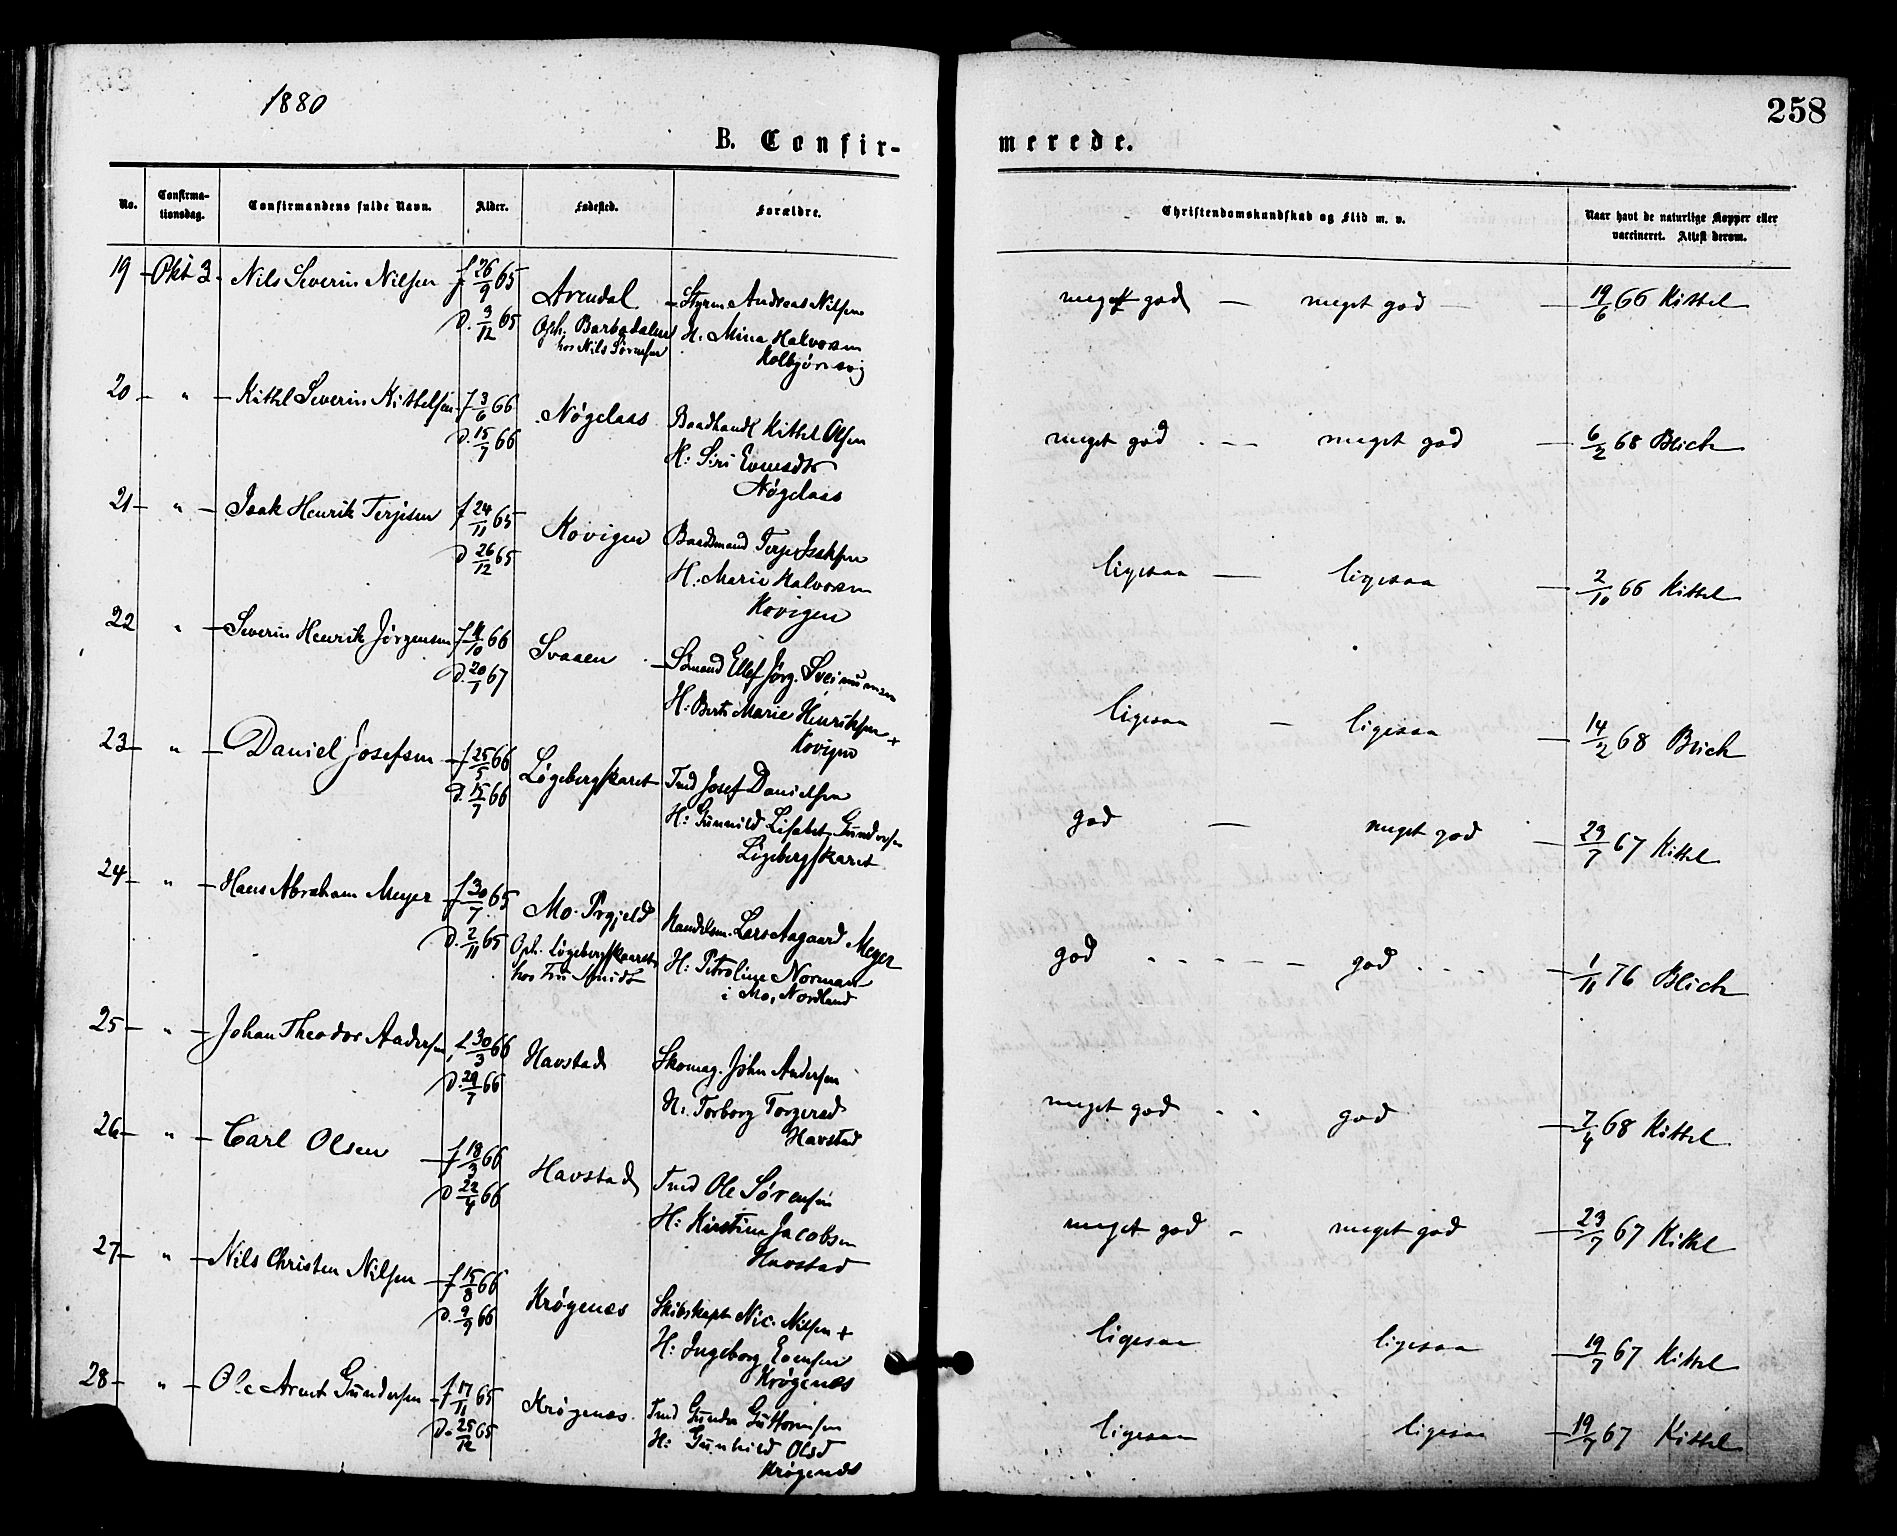 1880
258
B. Confir-
merede.
No.
Confirma-
tionsdag.
Confirmandens fulde Navn.
Alder.
Fødested.
Forældre.
Christendomskundskab og Flid m. v.
Naar havt de naturlige Kopper eller
vaccineret. Attest derom.
19 - Okt 3 - Nils Severin Nilsen f 26/9 65 Arendal - Styrm Andreas Nilsen meget god - meget god - 19/6 66 Kittel
D. 3/12 65 Oph. Barbodalen H. Mina Halvorsen
hos Nils Sørensen Kolbjørnsvig
20 - " - Kittel Severin Kittelsen f 3/6 66 Nøgelaas Baadhandl Kittel Olsen meget god - meget god - 6/2 68 Blich
D. 15/7 66 H: Siri Evensdtr
Nøgelaas
21 - " - Isak Henrik Terjesen f 24/11 65 Kovigen Baadsmand Terje Isaksen ligesaa - ligesaa - 2/10 66 Kittel
D 26/12 65 H. Marie Halvorsen
Kovigen
22 " - Severin Henrik Jörgensen f 11/10 66 Svaaen - Sömand Ellef Jörg. ligesaa - ligesaa - 14/2 68 Blich
D. 20/1 67 H. Berte Marie Henriksen +
Kovigen
23 - " - Daniel Josefsen - f 25/5 66 Løgebergskaret Tmd Josef Danielsen god - meget god - 23/7 67 Kittel
D. 15/7 66 H: Gunnild Lisabet Gundersen
Løgebergskaret
24 - " - Hans Abraham Meyer f 30/7 65 Mo. Prgjeld Handelsm. Lars Aagaard Meyer god - - - - - god - - - 1/11 76 Blich
D. 2/11 65 Oph. Løgebergskaret H: Petroline Norman
hos Fru Smidt i Mo, Nordland
25 - " - Johan Theodor Andersen f. 30/3 66 Havstad Skomag. John Andersen meget god - - god - 7/4 68 Kittel
D. 29/7 66 H: Torborg Torgersd
Havstad
26 - " - Carl Olsen - f 18/3 66 Havstad Tmd Ole Sørensen meget god - meget god - 23/7 67 Kittel
D 22/4 66 H: Kirstine Jacobsen
Havstad
27 - " - Nils Christen Nilsen - f 15/8 66 Krøgenæs Skibskapt Nic. Nilsen + ligesaa ligesaa - 19/7 67 Kittel
D. 9/9 66 H: Ingeborg Evensen
Krøgenæs
28 - " - Ole Arent Gundersen - f 17/11 65 Krøgenæs. Tmd Gunder Guttormsen ligesaa ligesaa - 19/7 67 Kittel
D. 25/12 65 H: Gunhild Olsd
Krøgenæs